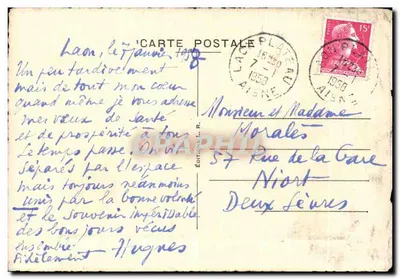 CARTE POSTALE
Laon, le 7 janvier 1958
Un peu tardivement
mais de tout mon cœur
quand même je vous adresse
mes vœux de santé
et de prospérité à tous
Le temps passe. On vit
séparés par l'espace
mais toujours néanmoins
unis par la bonne volonté
et le souvenir
des bons jours vécus
ensemble.
Fidèlement Hugues
LAON PLATEAU
7-1
1958
AISNE
15F
Monsieur et Madame
Moralès
57 Rue de la Gare
Niort
Deux Sèvres